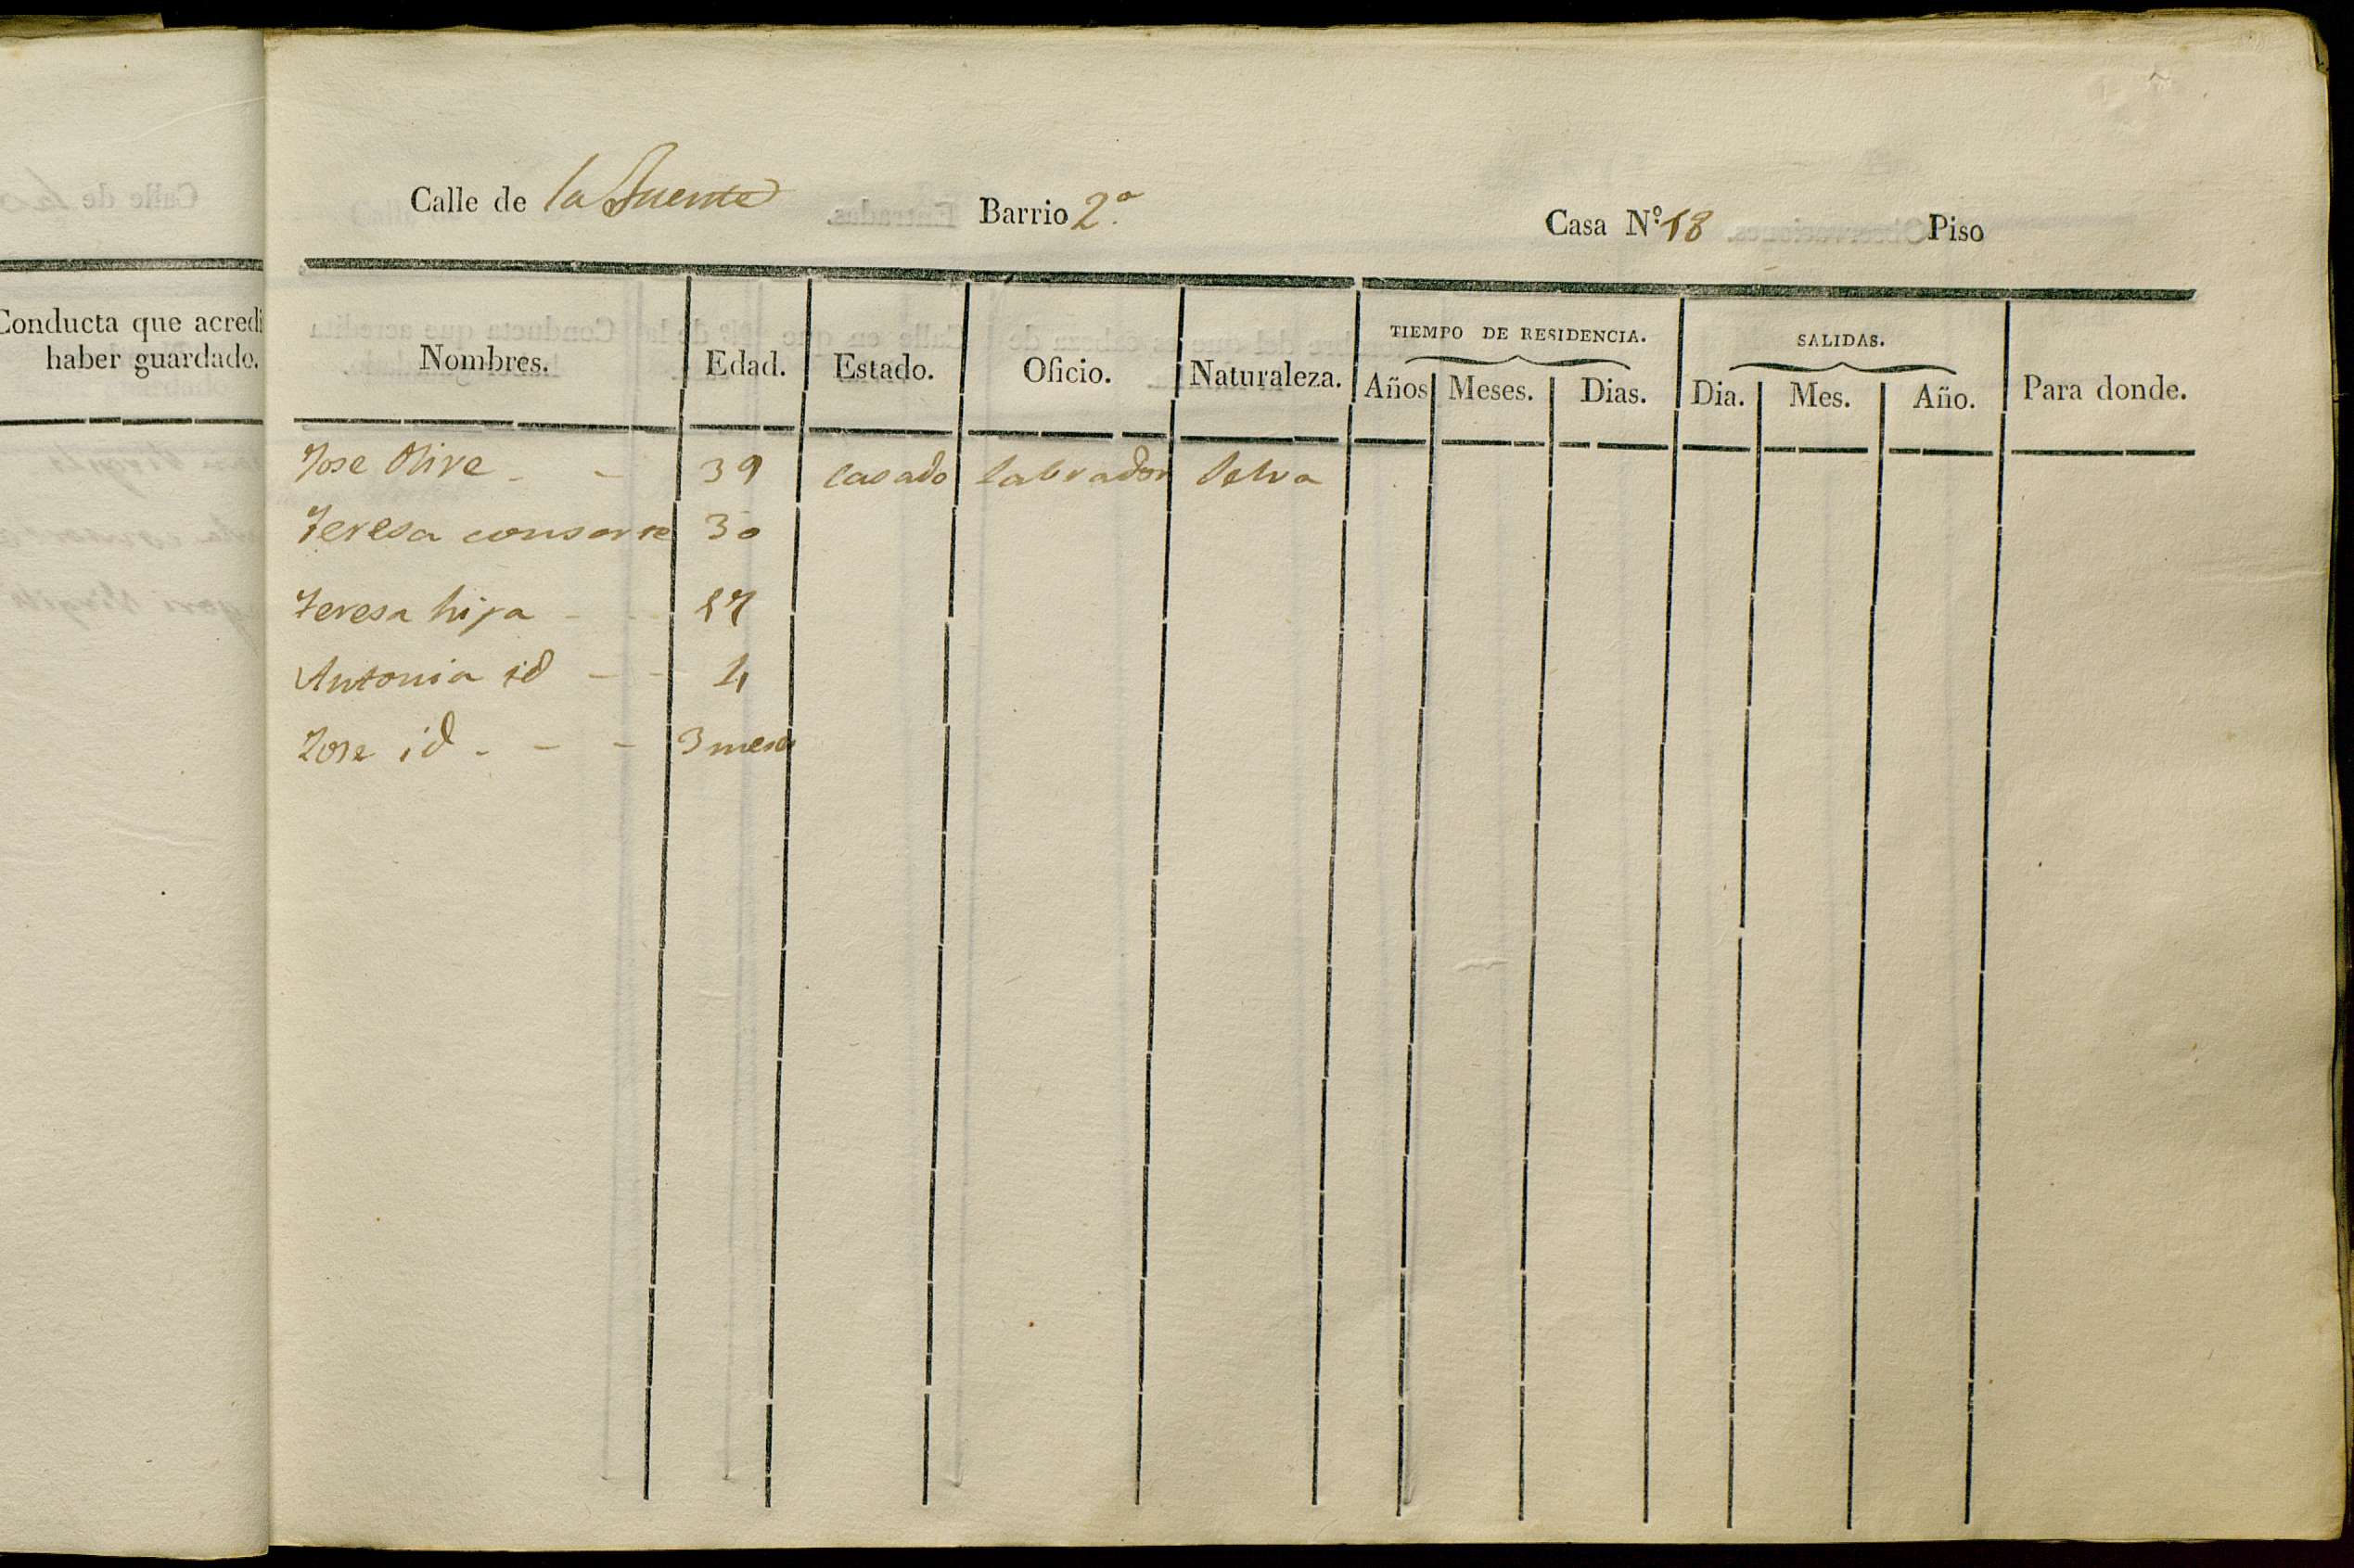 Conducta que acredi
haber guardado.
Calle de la Fuente Barrio 2.º Casa N.º 18 Piso
Nombres. Edad. Estado. Oficio. Naturaleza. TIEMPO DE RESIDENCIA. SALIDAS. Para donde.
Años Meses. Dias. Dia. Mes. Año.
Jose Olive - - 39 casado labrador Selva
Teresa consorte 30
Teresa hija - - 17
Antonia id - - 4
Jose id - - - 3 meses